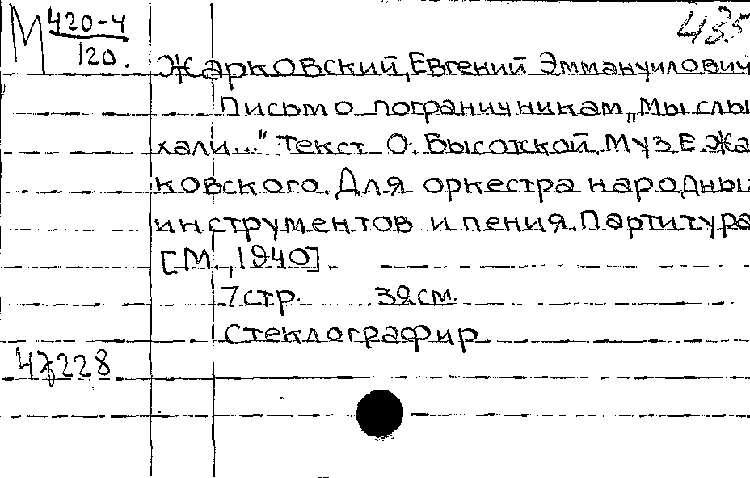 М 420-4
120.
435
Жарковский, Евгений Эммануилович
Письмо пограничникам „Мы слы
хали..." Текст О. Высотской. Муз. Е. Жа
ковского. Для оркестра народны
инструментов и пения. Партитура
[М., 1940].
7 стр. 32 см.
Стеклографир
47228